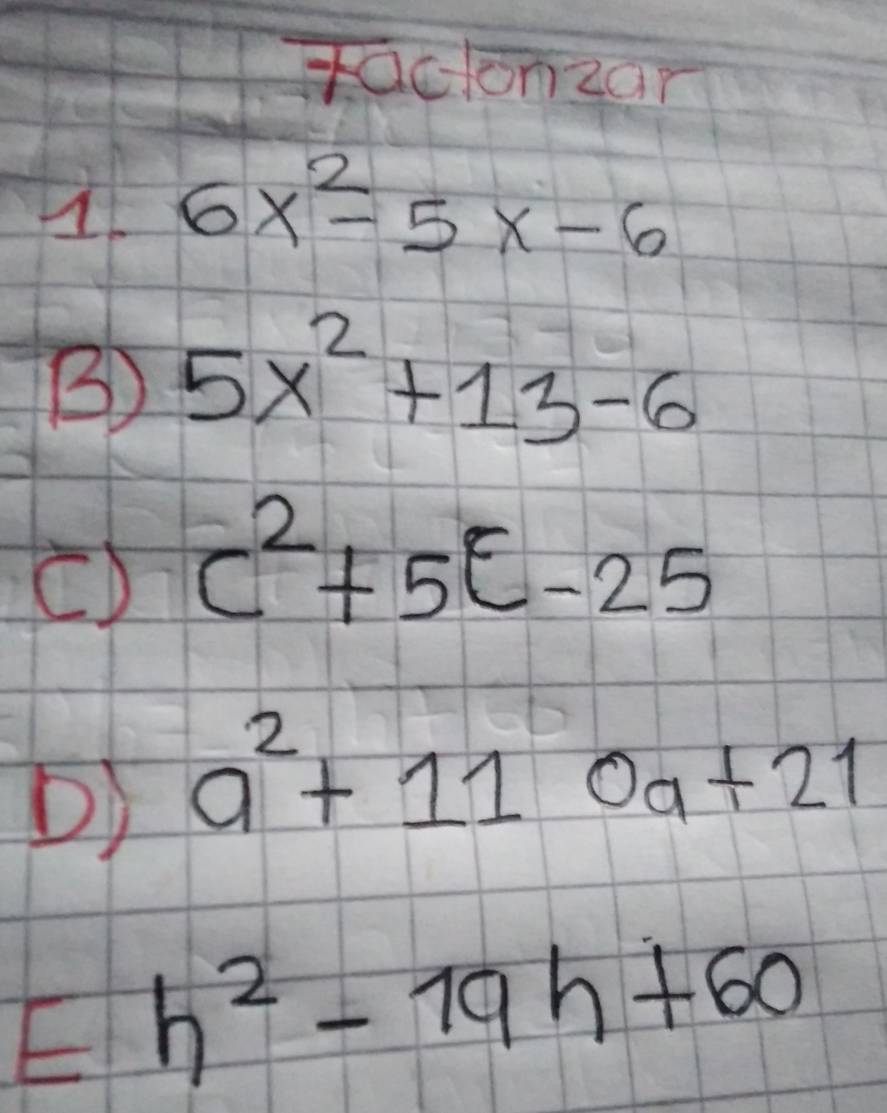 Factorizar
1. 6x² - 5x - 6
B) 5x² + 13 - 6
C) c² + 5c - 25
D) a² + 11 0a + 21
E h² - 19h + 60